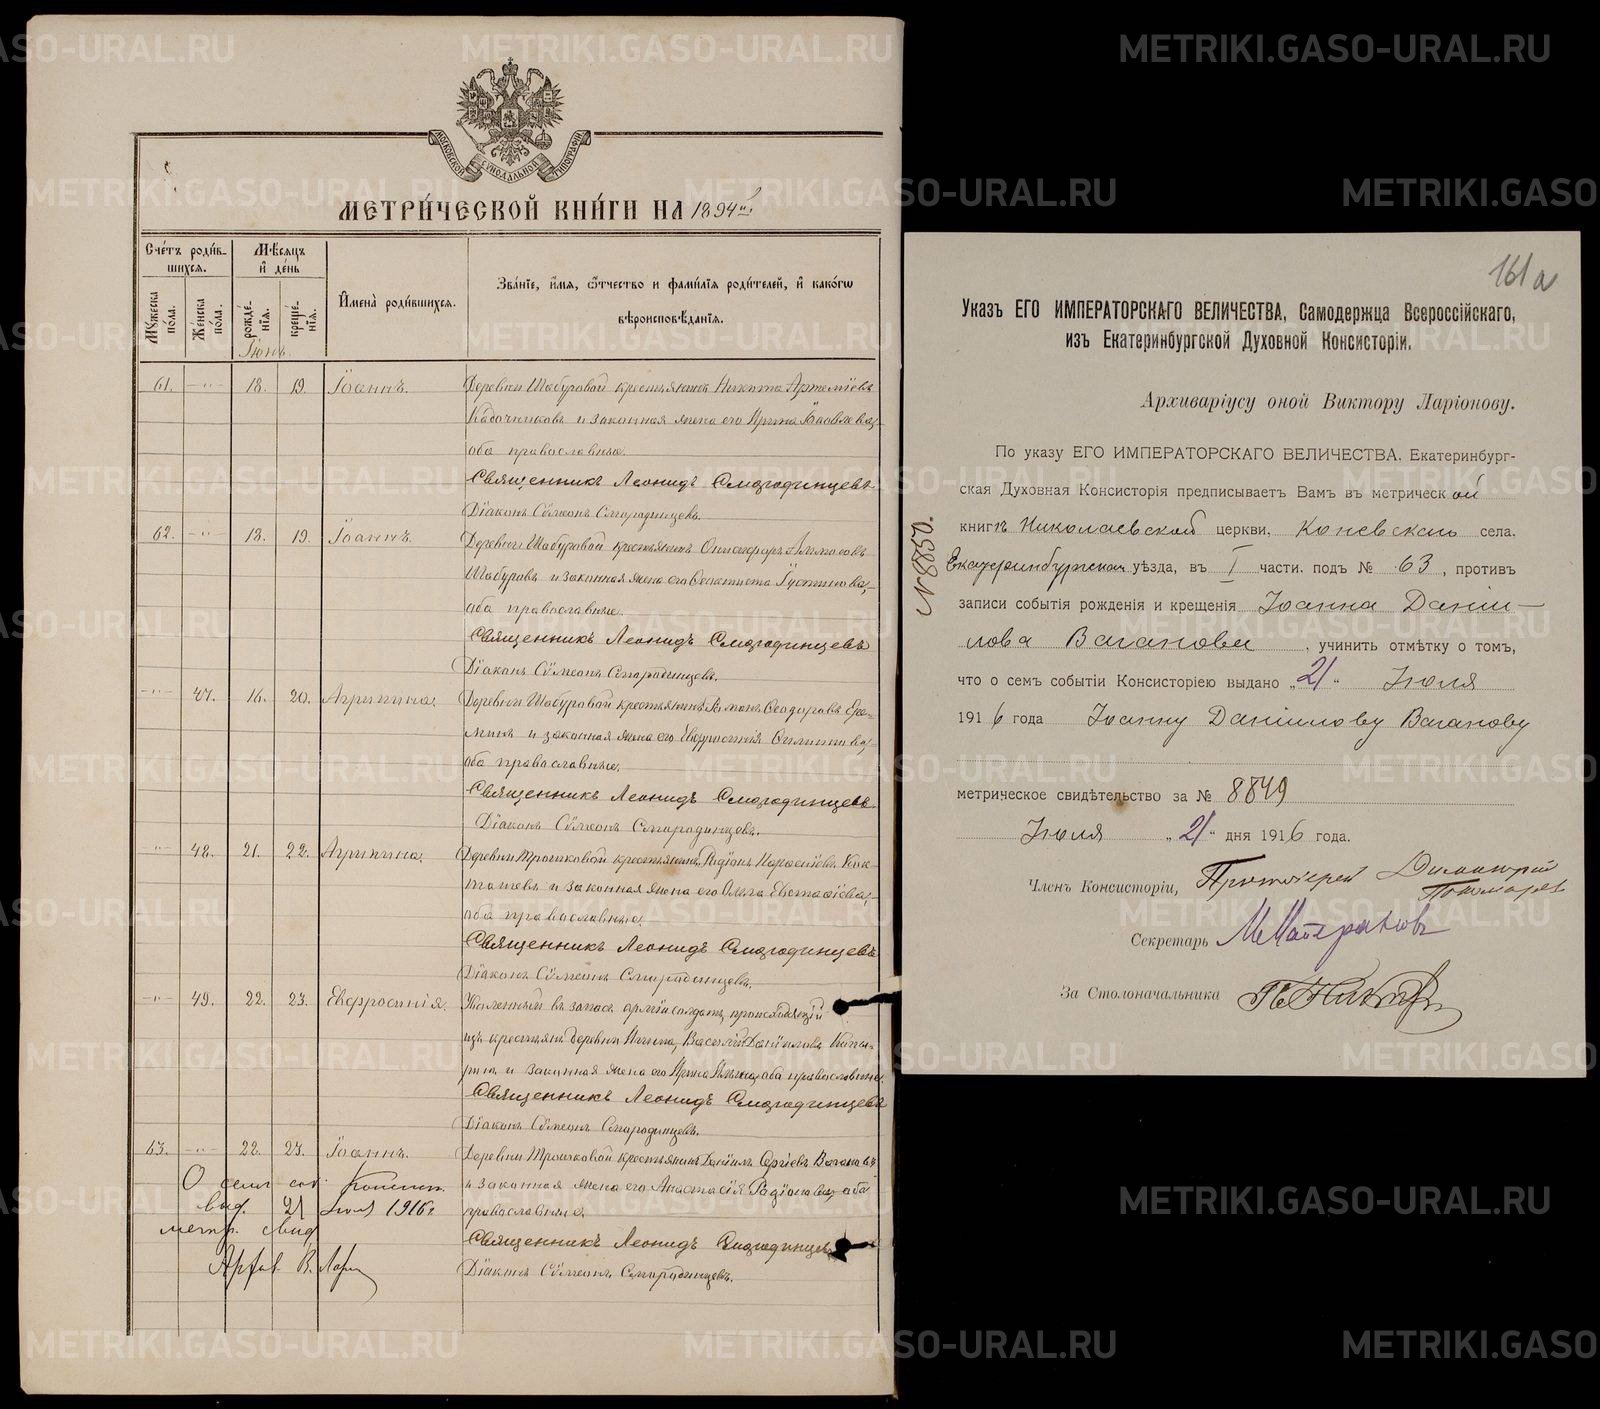 МОСКОВСКОЙ СУНОДАЛЬНОЙ ТИПОГРАФІИ
МЕТРИ́ЧЕСКОЙ КНИ́ГИ НА 1894 й.
Сче́тъ роди́вшихся.
Му́жеска по́ла.
Же́нска по́ла.
Мѣ́сяцъ и де́нь
рожде́нїя.
креще́нїя.
И҆мена̀ роди́вшихся.
Зва́нїе, и҆́мя, ѻ҆́тчество и фами́лїя роди́телей, и҆ како́гѡ
вѣроисповѣ́данїя.
Іюнь.
61. -"- 18. 19. Іоаннъ. Деревни Шабуровой крестьянинъ Никита Артемїевъ
Кабочниковъ и законная жена его Ирина Іаковлева,
оба православные.
Священникъ Леонидъ Смородинцевъ
Дїаконъ Сѵмеонъ Смородинцевъ.
62. -"- 18. 19. Іоаннъ. Деревни Шабуровой крестьянинъ
Шабуровъ и законная жена его Ѳеоктиста Іустинова,
оба православные.
Священникъ Леонидъ Смородинцевъ
Дїаконъ Сѵмеонъ Смородинцевъ.
-"- 47. 16. 20. Агрипина. Деревни Шабуровой крестьянинъ Ѳеодоровъ Ере-
минъ и законная жена его Филиппова,
оба православные.
Священникъ Леонидъ Смородинцевъ.
Дїаконъ Сѵмеонъ Смородинцевъ.
-"- 48. 21. 22. Агрипина. Деревни Трошковой крестьянинъ Радїонъ
и законная жена его Ольга Евстафїева,
оба православные.
Священникъ Леонидъ Смородинцевъ
Дїаконъ Сѵмеонъ Смородинцевъ.
-"- 49. 22. 23. Евфросинїя. Уволенный въ запасъ армїи солдатъ, происходящїй
изъ крестьянъ деревни Василїй Данїиловъ
и законная жена его Ирина оба православные.
Священникъ Леонидъ Смородинцевъ
Дїаконъ Сѵмеонъ Смородинцевъ.
63. -"- 22. 23. Іоаннъ. Деревни Трошковой крестьянинъ Данїилъ Сергїевъ Вагановъ
и законная жена его Анастасїя Радїонова, оба
православные.
Священникъ Леонидъ Смородинцевъ
Дїаконъ Сѵмеонъ Смородинцевъ.
О семъ соб. Консист.
выд. 21 Іюля 1916 г.
метр. свид.
Архив. В. Лар
161а
Указъ ЕГО ИМПЕРАТОРСКАГО ВЕЛИЧЕСТВА, Самодержца Всероссійскаго,
изъ Екатеринбургской Духовной Консисторіи.
Архиваріусу оной Виктору Ларіонову.
По указу ЕГО ИМПЕРАТОРСКАГО ВЕЛИЧЕСТВА, Екатеринбург-
ская Духовная Консисторія предписываетъ Вамъ въ метрической
книгѣ Николаевской церкви, Коневскаго села,
Екатеринбургскаго уѣзда, въ I части, подъ № 63, противъ
записи событія рожденія и крещенія Іоанна Даніи-
лова Ваганова, учинить отмѣтку о томъ,
что о семъ событіи Консисторіею выдано „21“ Іюля
1916 года Іоанну Даніилову Ваганову
метрическое свидѣтельство за № 8849
Іюля „21“ дня 1916 года.
№ 8850.
Членъ Консисторіи, Протоіерей Димитрій
Пономаревъ
Секретарь
За Столоначальника
METRIKI.GASO-URAL.RU